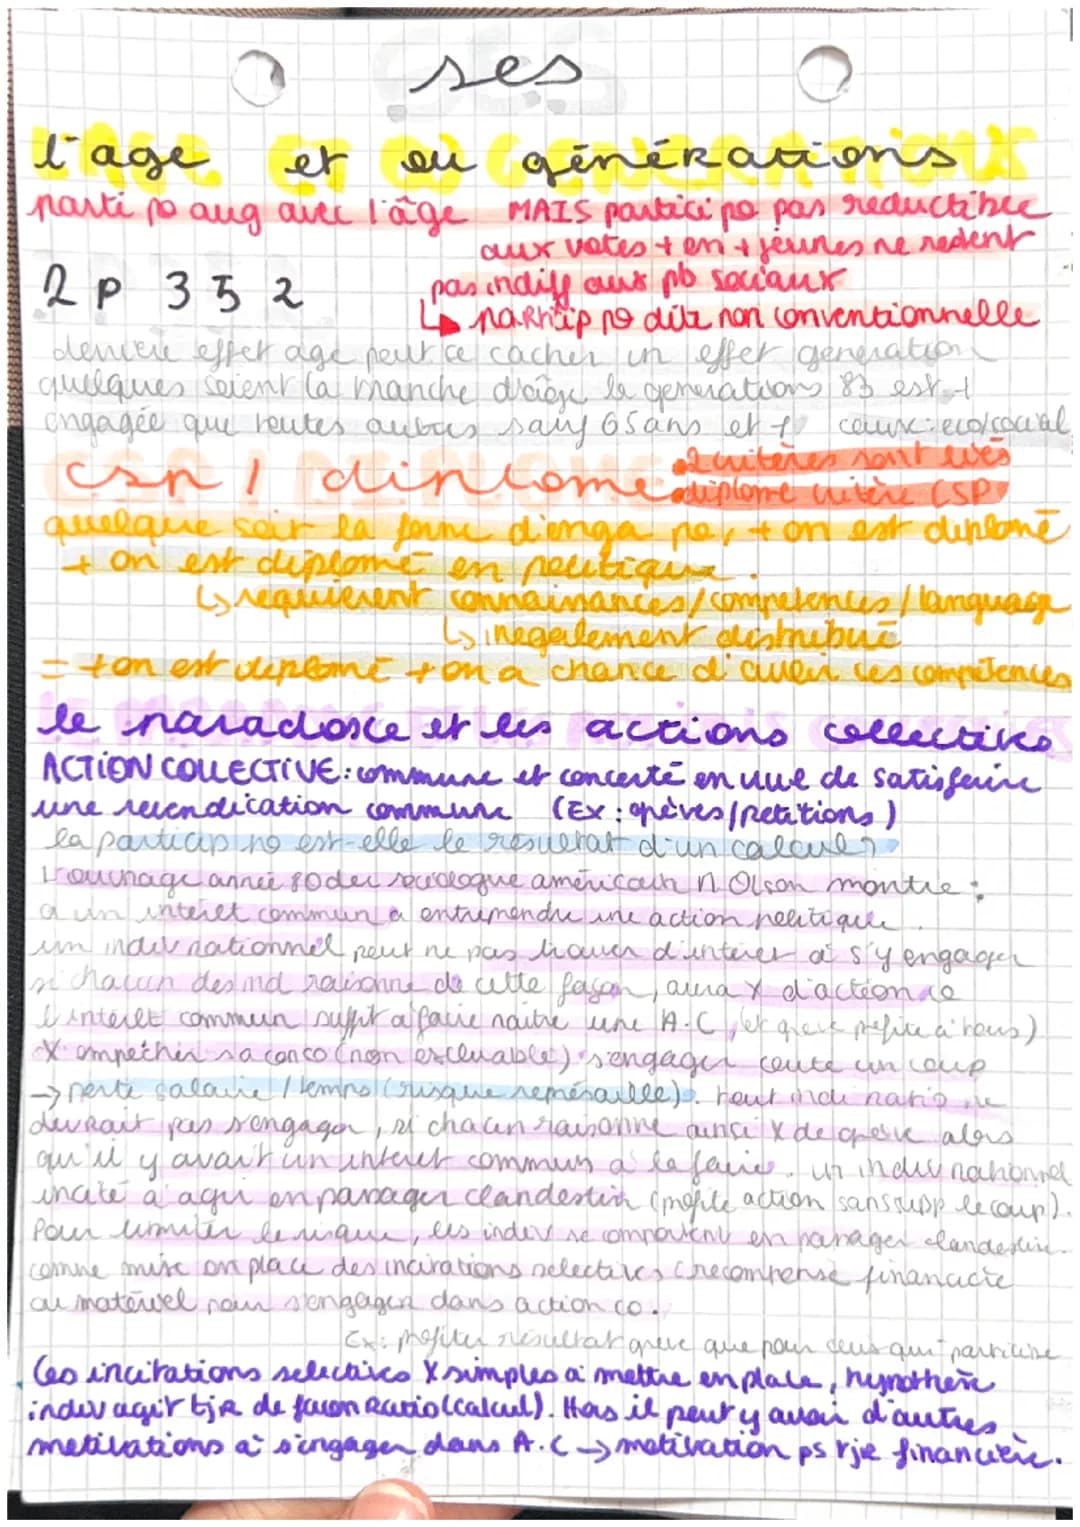 ses
l'age et ou générations
parti po aug avec l'âge MAIS particip po pas reductible
aux votes + en + jeunes ne restent
pas indiff aux pb sociaux
2 P 352
↳ particip po dite non conventionnelle
derriere effet age peut ce cacher un effet generation
quelques soient la tranche d'age la generations 83 est +
engagée que toutes autres sauf 65 ans et + caux: eco/social
csp / diplome
• 2 critères sont liés
• diplome critère CSP
quelque soit la forme d'enga po, + on est diplomé
+ on est diplomé en politique.
↳ requierent connaissances/competences/language
↳ inegalement distribué
= + on est diplomé + on a chance d'avoir les compétences
le paradoxe et les actions collectives
ACTION COLLECTIVE: commune et concerté en vue de satisfaire
une revendication commune (Ex: grèves/petitions)
la particip po est-elle le résultat d'un calcul?
L'ouvrage année 80 du sociologue américain M. Olson montre:
a un intérêt commun a entreprendre une action politique.
un indiv rationnel peut ne pas trouver d'interet à s'y engager
si chacun des ind raisonne de cette façon, aura X d'action co
l'intérêt commun suffit a faire naitre une A.C, (et greve profite a tous)
X empecher sa conso (non excluable) s'engager coute un coup
→ perte salaire / temps (risque represaille). tout indi ratio ne
devrait pas s'engager, si chacun raisonne ainsi X de greve alors
qu'il y avait un interet commun a la faire. un indiv rationnel
incité a agir en passager clandestin (profite action sans supp le coup).
Pour limiter le risque, les indiv se comportent en passager clandestin.
comme mise en place des incitations selectives (recompense financiere
ou materiel pour s'engager dans action co.
Ex: profiter résultat greve que pour ceux qui participe
Ces incitations selectives X simples a mettre en place, hypothese
indiv agit tjr de facon Ratio (calcul). Hors il peut y avoir d'autres
motivations a s'engager dans A.C → motivation ps tjr financière.